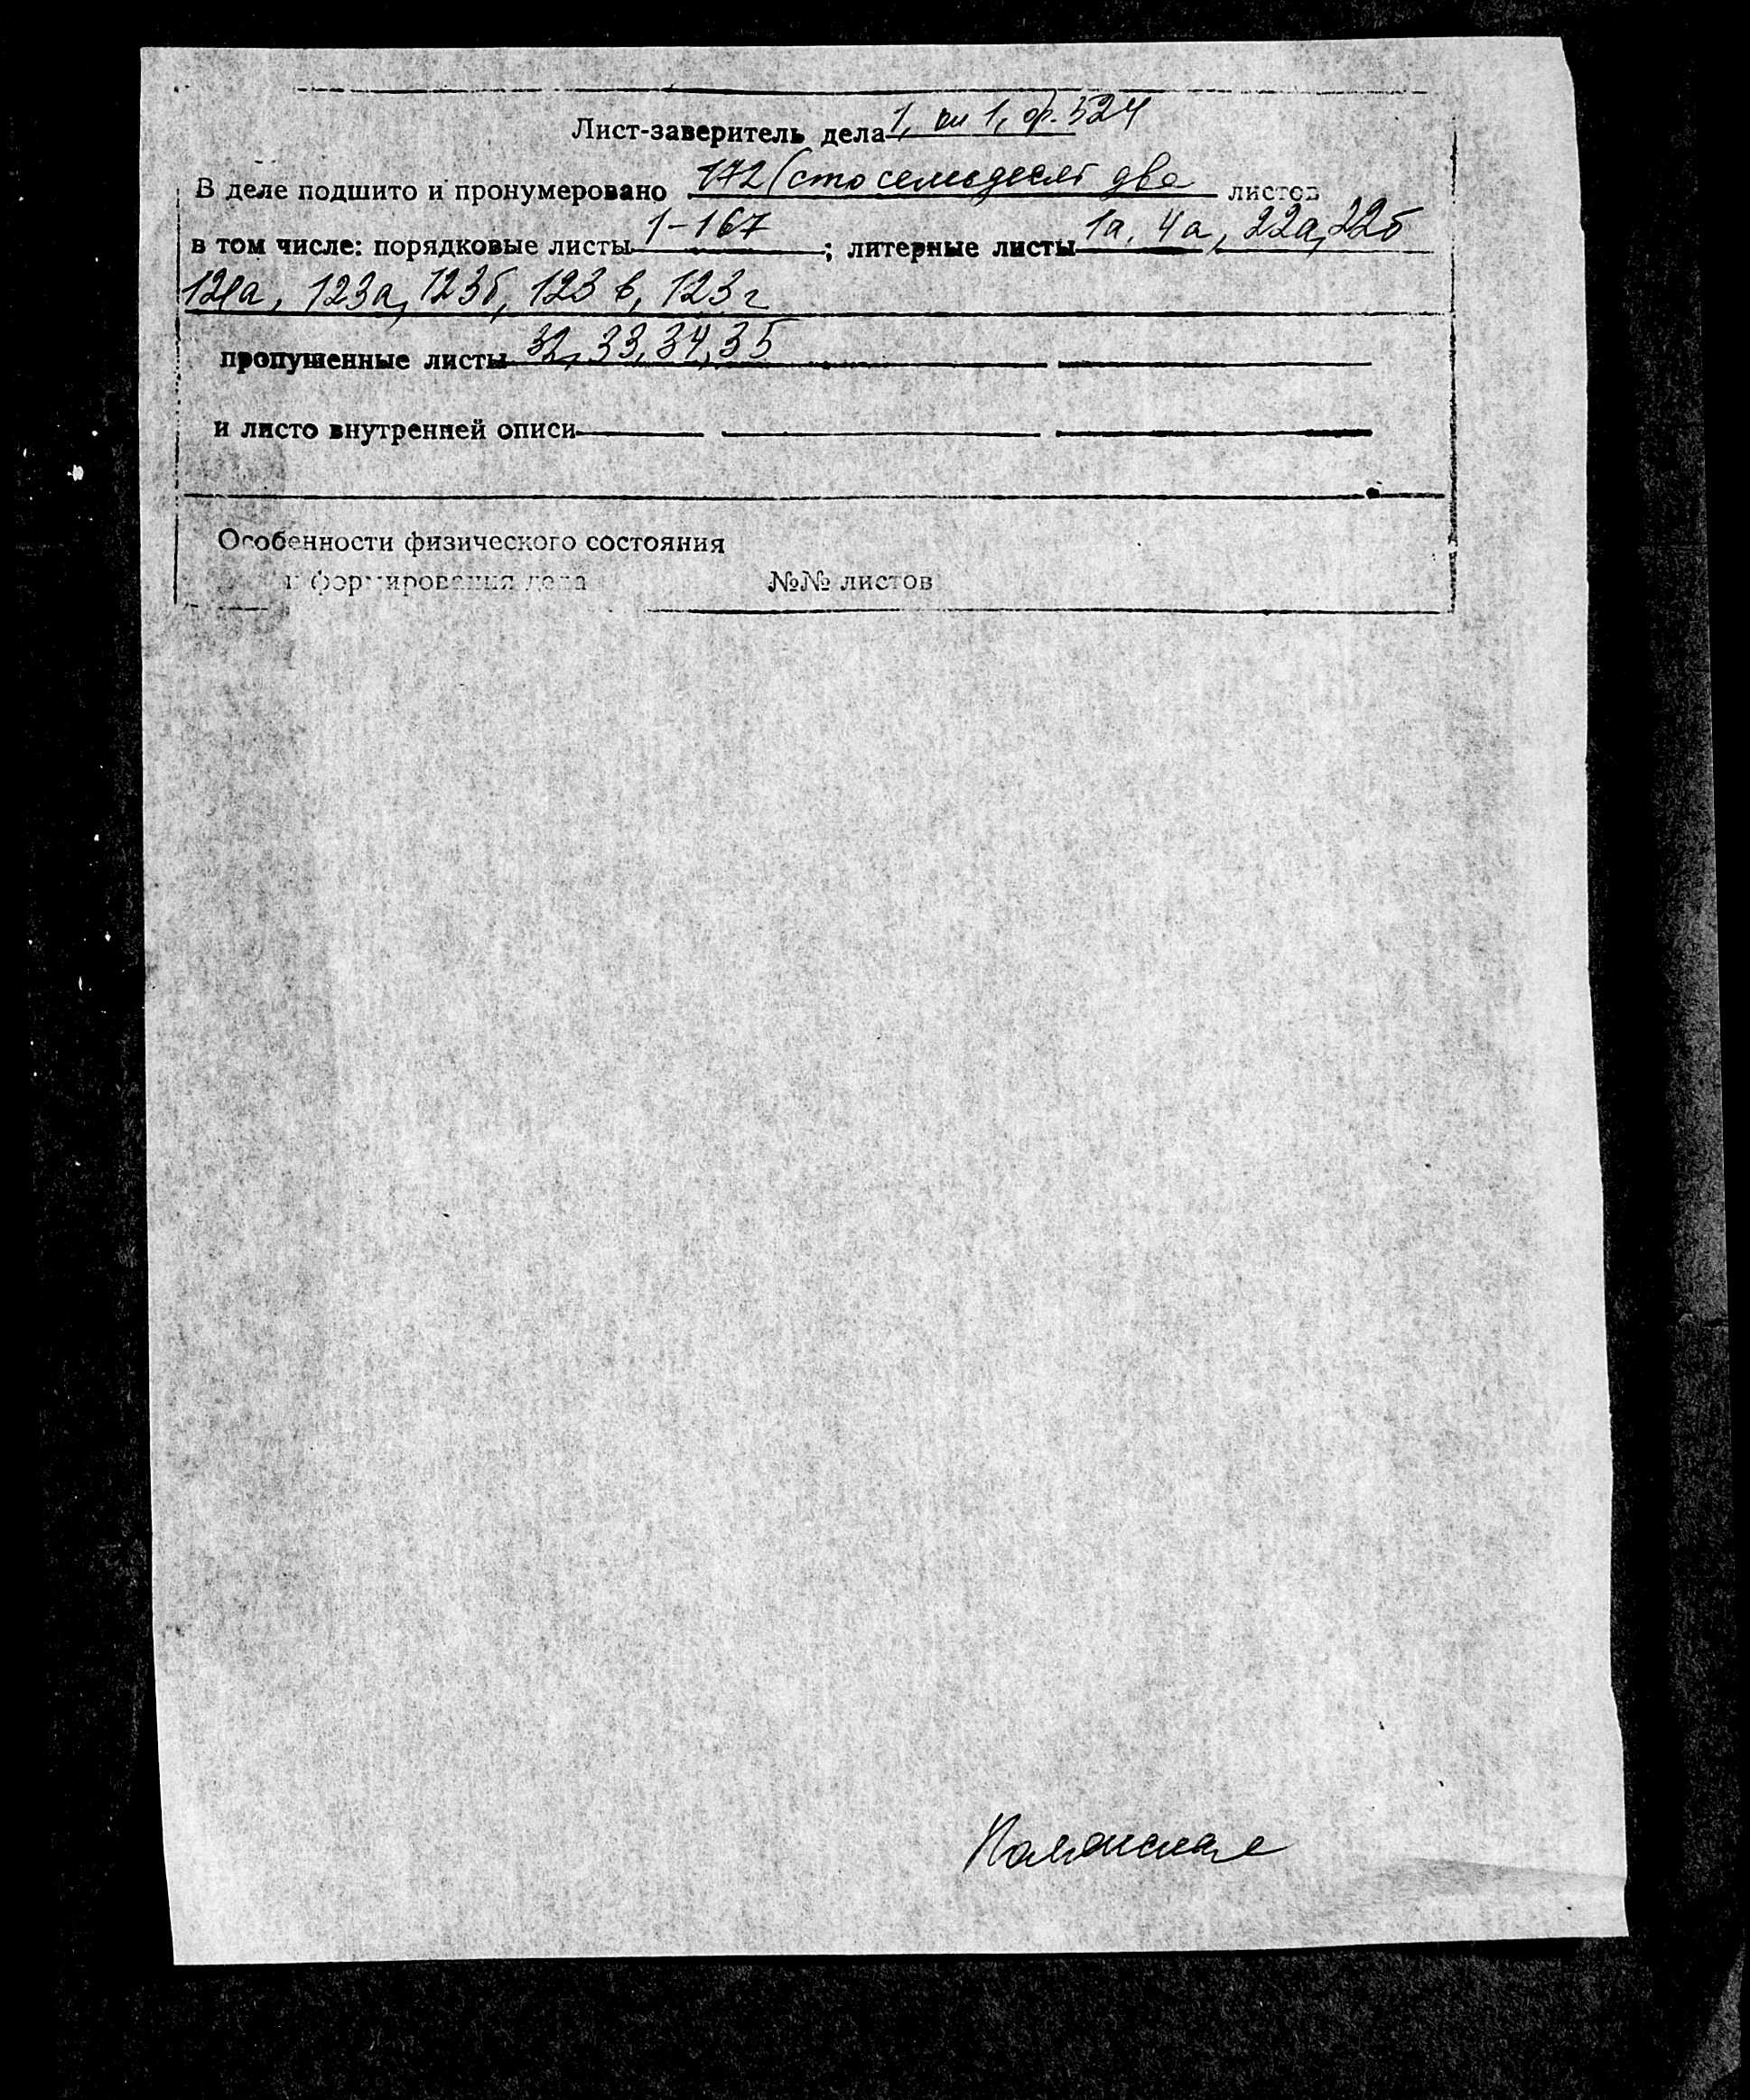 Лист-заверитель дела 1, оп 1, ф. 524
В деле подшито и пронумеровано 172 (сто семьдесят два листов
в том числе: порядковые листы 1-167 ; литерные листы 1а, 4а, 22а, 22б
121а, 123а, 123б, 123в, 123г
пропущенные листы 32, 33, 34, 35
и листо внутренней описи
Особенности физического состояния
и формирования дела №№ листов